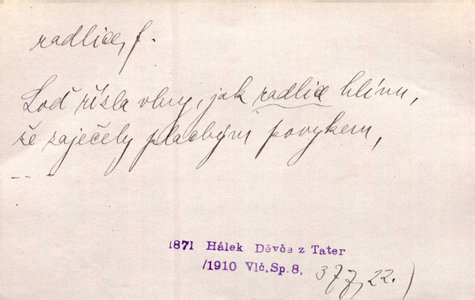 radlice, f.
Loď řízla vlny, jak radlice hlínu,
že zaječely plachými povykem,
– –
1871 Hálek Děvče z Tater
/1910 Vlč.Sp.8, 377, 22.)